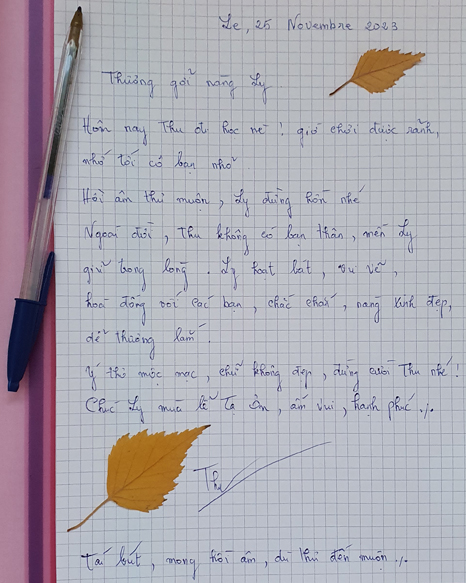 Le, 25 Novembre 2023
Thương gởi nàng Ly
Hôm nay Thu đi học nè ! giờ chơi được rảnh,
nhớ tới cô bạn nhỏ
Hồi âm thư muộn, Ly đừng hờn nhé
Ngoài đời, Thu không có bạn thân, mến Ly
giữ trong lòng. Ly hoạt bát, vui vẻ,
hoà đồng với các bạn, chắc chắn, nàng xinh đẹp,
dễ thương lắm.
Ý thơ mộc mạc, chữ không đẹp, đừng cười Thu nhé !
Chúc Ly mùa lễ Tạ Ơn, ấm vui, hạnh phúc ./.
Thu
Tái bút, mong hồi âm, dù thư đến muộn ./.